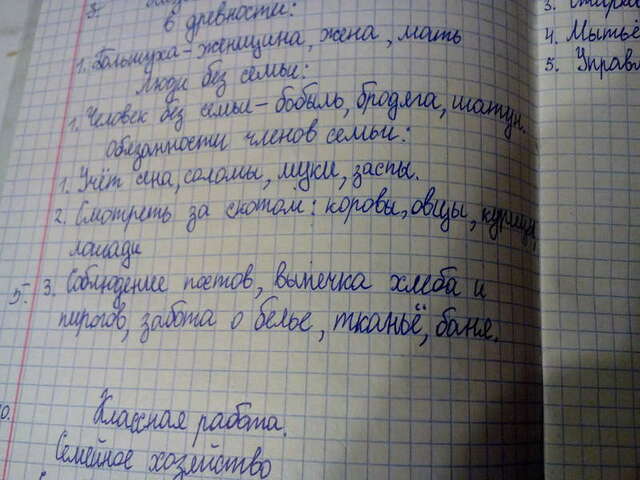 в древности:
1. Большуха - женщина, жена, мать
Люди без семьи:
1. Человек без семьи - бобыль, бродяга, шатун.
Обязанности членов семьи:
1. Учёт сена, соломы, муки, заспы.
2. Смотреть за скотом: коровы, овцы, курицы,
лошади
5. 3. Соблюдение постов, выпечка хлеба и
пирогов, забота о белье, тканьё, баня.
Классная работа.
Семейное хозяйство
3. Стирка
4. Мытьё
5. Управл